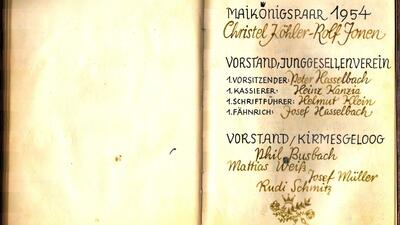 MAIKÖNIGSPAAR 1954
Christel Köhler-Rolf Jonen
VORSTAND, JUNGGESELLENVEREIN
1.VORSITZENDER: Peter Hasselbach
1.KASSIERER: Heinz Kanzia
1.SCHRIFTFÜHRER: Helmut Klein
1.FÄHNRICH: Josef Hasselbach
VORSTAND/KIRMESGELOOG
Phil Busbach
Mathias Weiß
Josef Müller
Rudi Schmitz